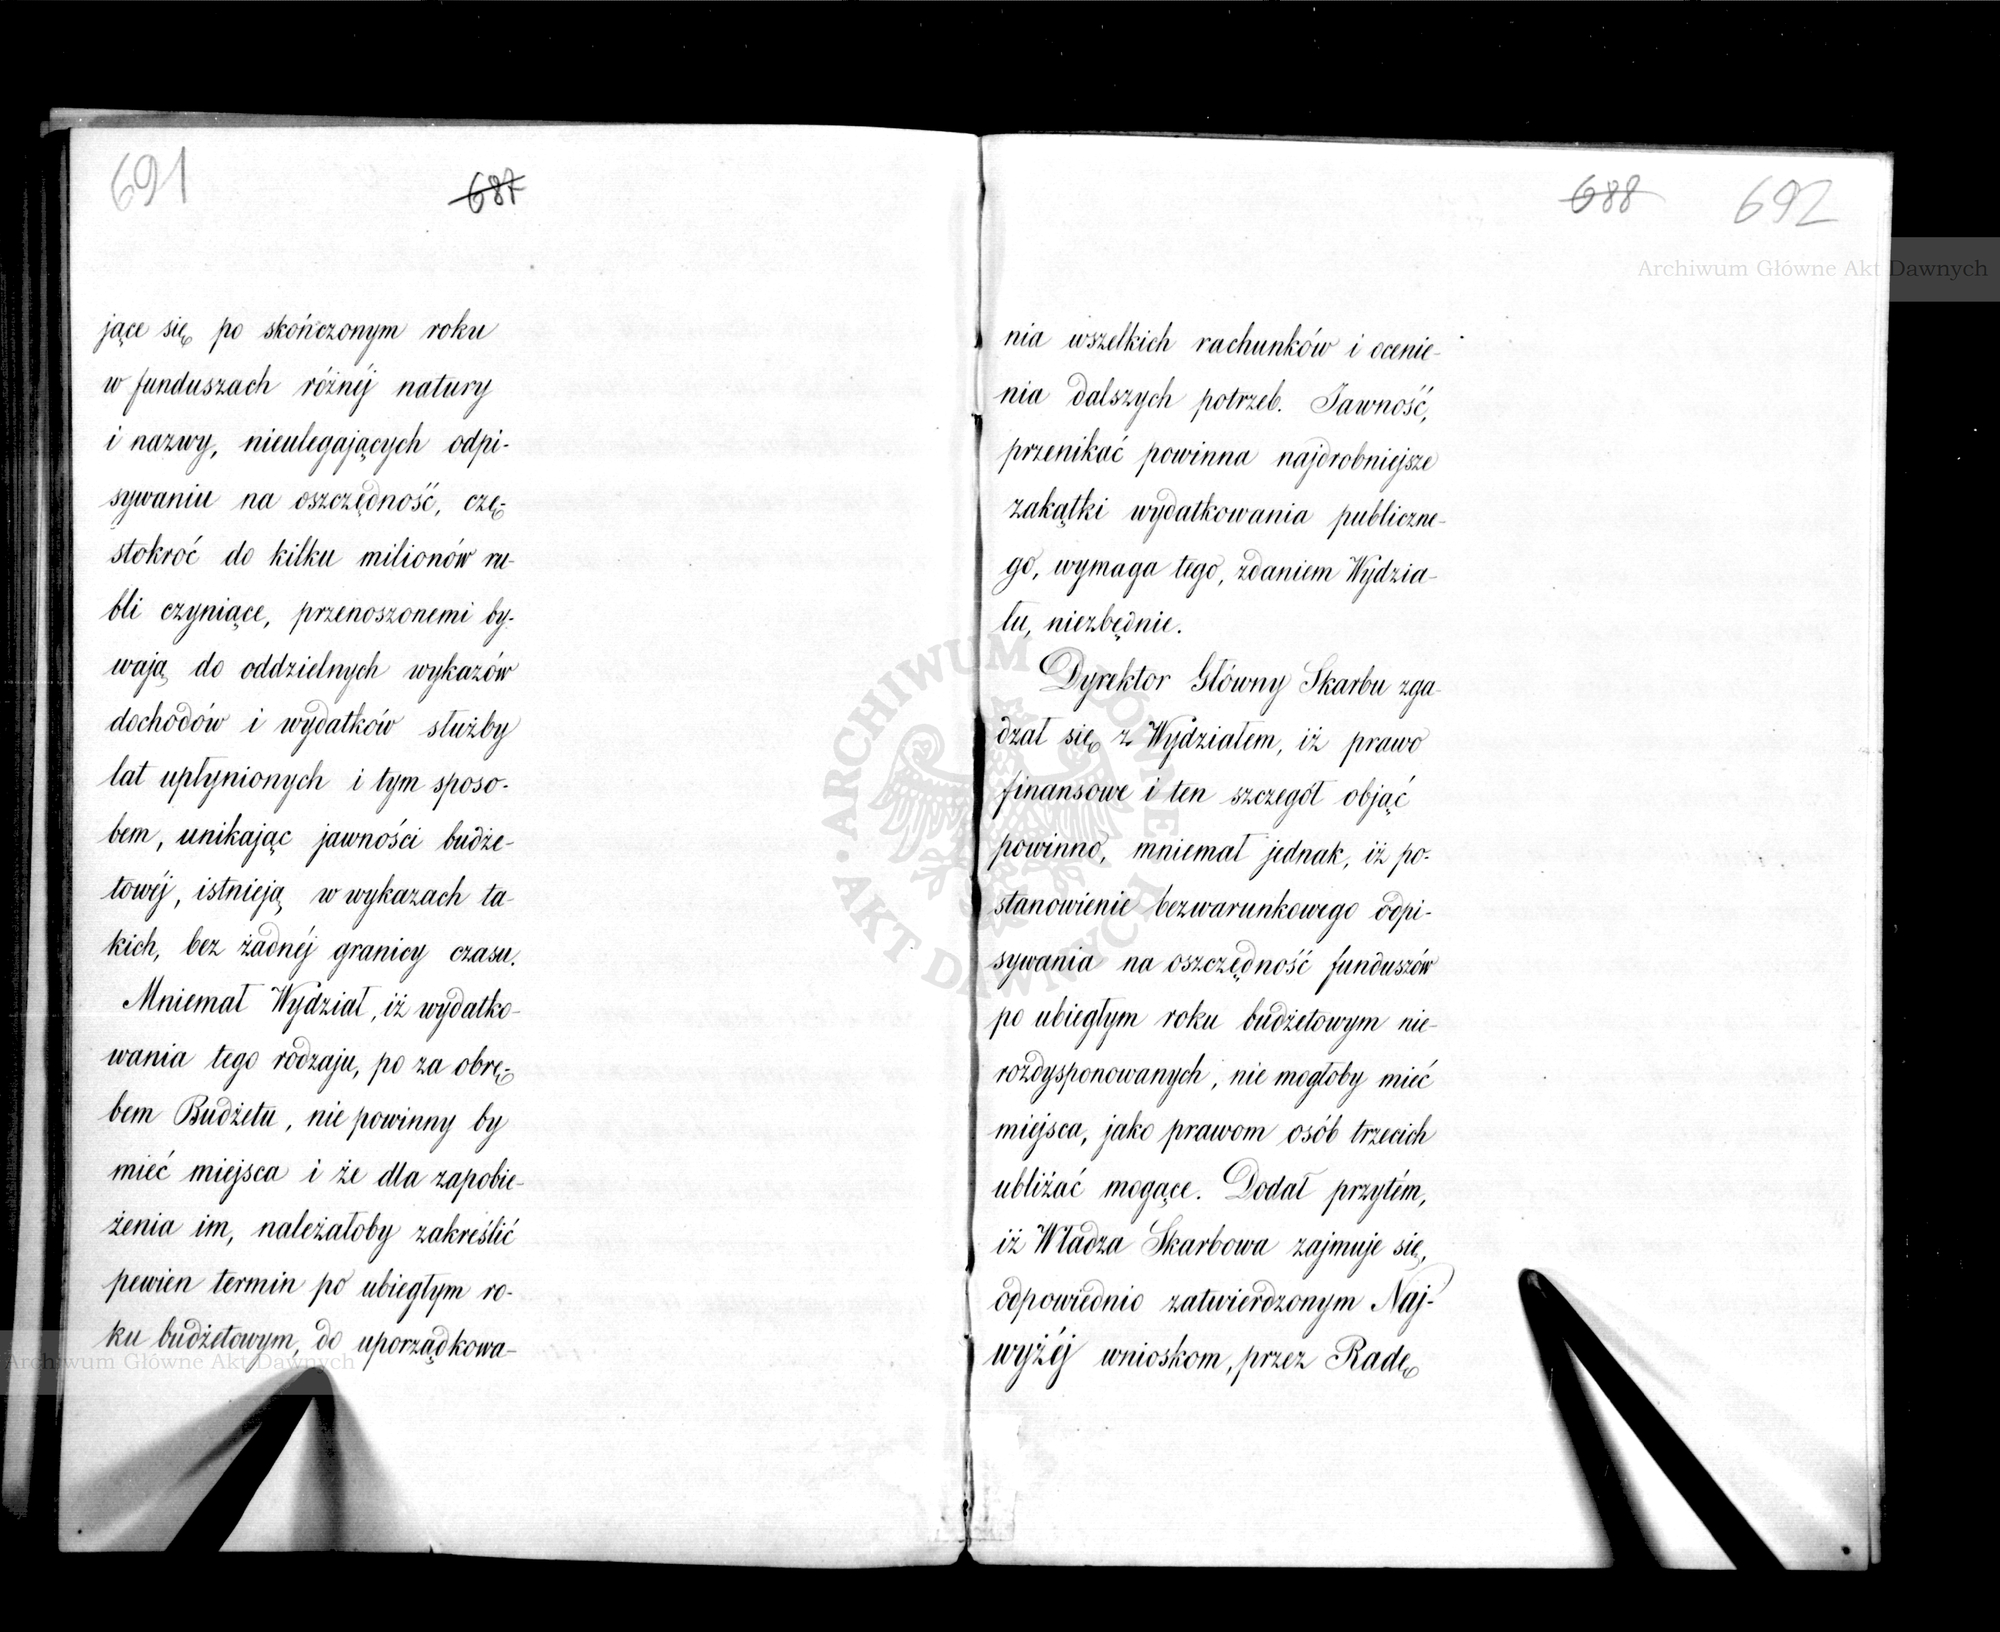 691
687
jące się po skończonym roku
w funduszach różnéj natury
i nazwy, nieulegających odpi-
sywaniu na oszczędność, czę-
stokroć do kilku milionów ru-
bli czyniące, przenoszonemi by-
wają do oddzielnych wykazów
dochodów i wydatków służby
lat upłynionych i tym sposo-
bem, unikając jawności budże-
towéj, istnieją w wykazach ta-
kich, bez żadnéj granicy czasu.
Mniemał Wydział, iż wydatko-
wania tego rodzaju, po za obrę-
bem Budżetu, nie powinny by
mieć miejsca i że dla zapobie-
żenia im, należałoby zakreślić
pewien termin po ubiegłym ro-
ku budżetowym, do uporządkowa-
688
692
nia wszelkich rachunków i ocenie-
nia dalszych potrzeb. Jawność,
przenikać powinna najdrobniejsze
zakątki wydatkowania publiczne-
go, wymaga tego, zdaniem Wydzia-
łu, niezbędnie.
Dyrektor Główny Skarbu zga-
dzał się z Wydziałem, iż prawo
finansowe i ten szczegół objąć
powinno, mniemał jednak, iż po-
stanowienie bezwarunkowego odpi-
sywania na oszczędność funduszów
po ubiegłym roku budżetowym nie-
rozdysponowanych, nie mogłoby mieć
miejsca, jako prawom osób trzecich
ubliżać mogące. Dodał przytém,
iż Władza Skarbowa zajmuje się,
odpowiednio zatwierdzonym Naj-
wyżéj wnioskom, przez Radę
Archiwum Główne Akt Dawnych
Archiwum Główne Akt Dawnych
ARCHIWUM GŁÓWNE
AKT DAWNYCH